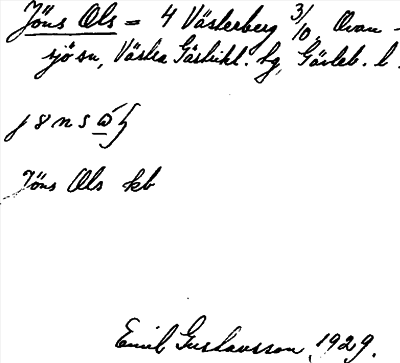 Jöns Ols = 4 Västerberg 3/10, Ovan-
sjö sn, Västra Gästrikl. hg, Gävleb. l.
Jöns Ols kb
Emil Gustavsson 1929.